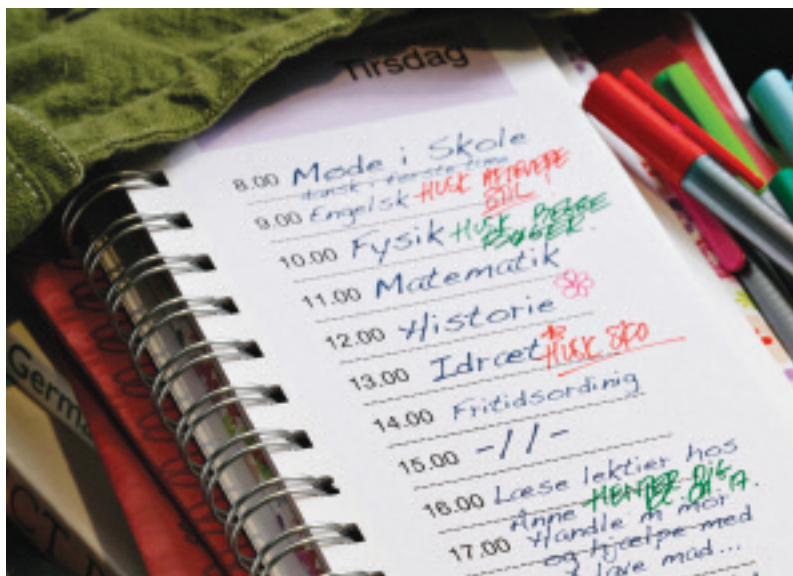 Tirsdag
8.00 Møde i Skole
dansk i første time
9.00 Engelsk HUSK AFLEVERE
STIL
10.00 Fysik HUSK BEGGE
BØGER.
11.00 Matematik
12.00 Historie
13.00 Idræt HUSK SKO
14.00 Fritidsordinig
15.00 -//-
16.00 Læse lektier hos
Anne HENTER DIG
17.00 Handle m mor
og hjælpe med
lave mad...
Germa
CT